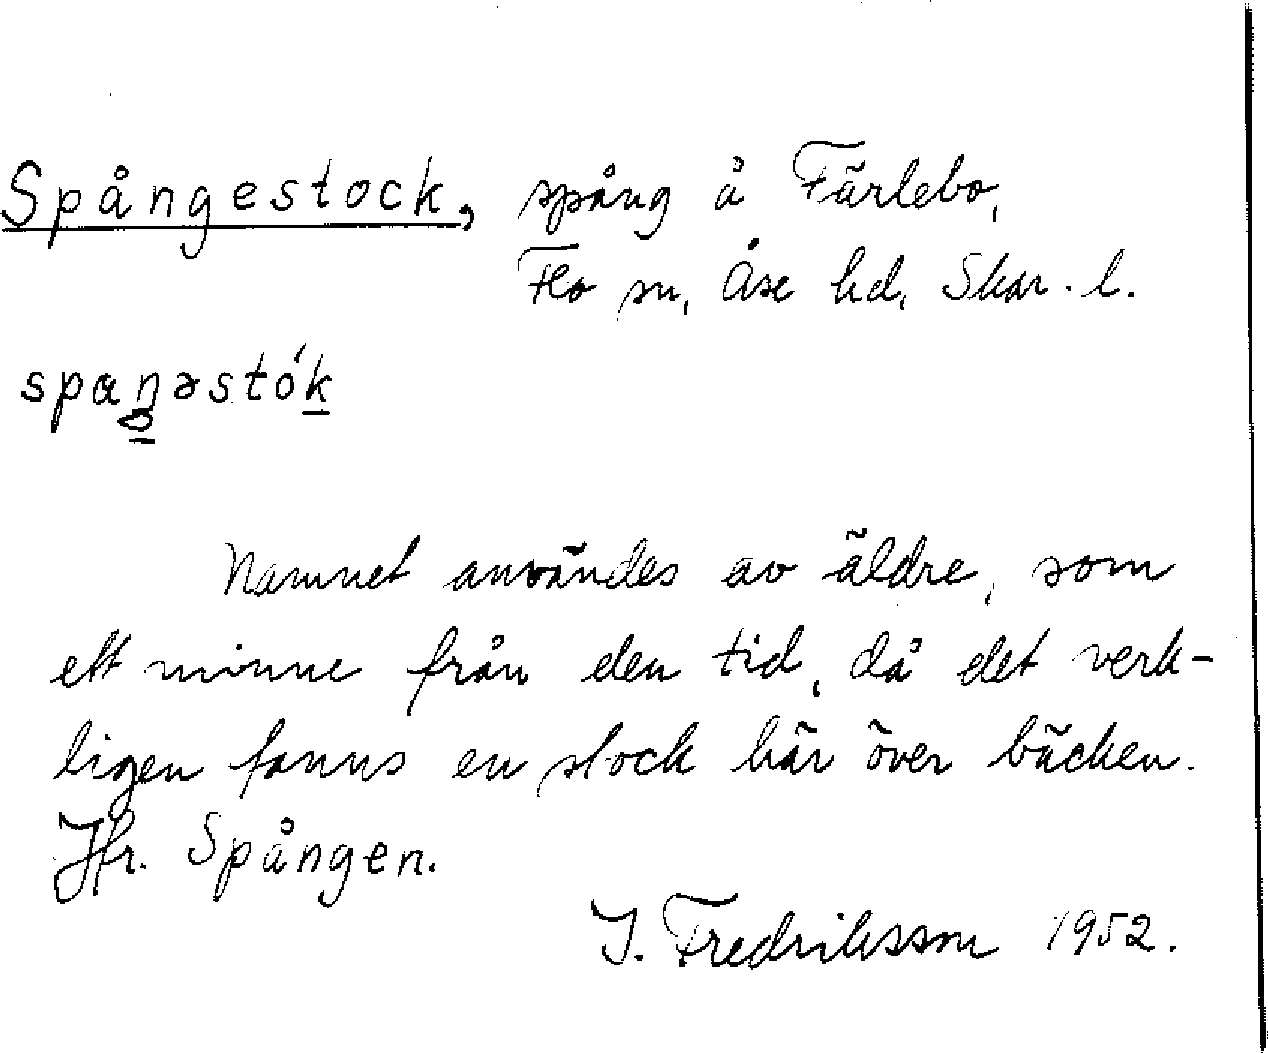 Spångestock, spång å Färlebo,
Flo sn, Åse hd, Skar. l.
spaŋəstók
Namnet användes av äldre, som
ett minne från den tid, då det verk-
ligen fanns en stock här över bäcken.
Jfr. Spången.
J. Fredriksson 1952.